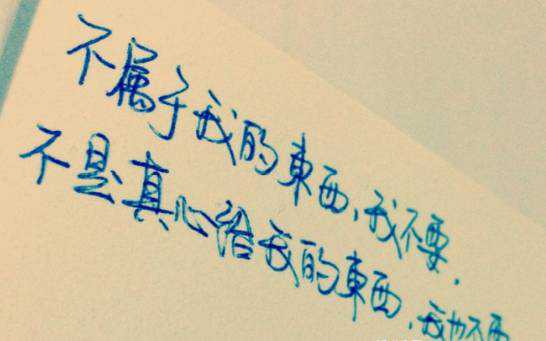 不属于我的東西,我不要.
不是真心给我的東西,我也不要